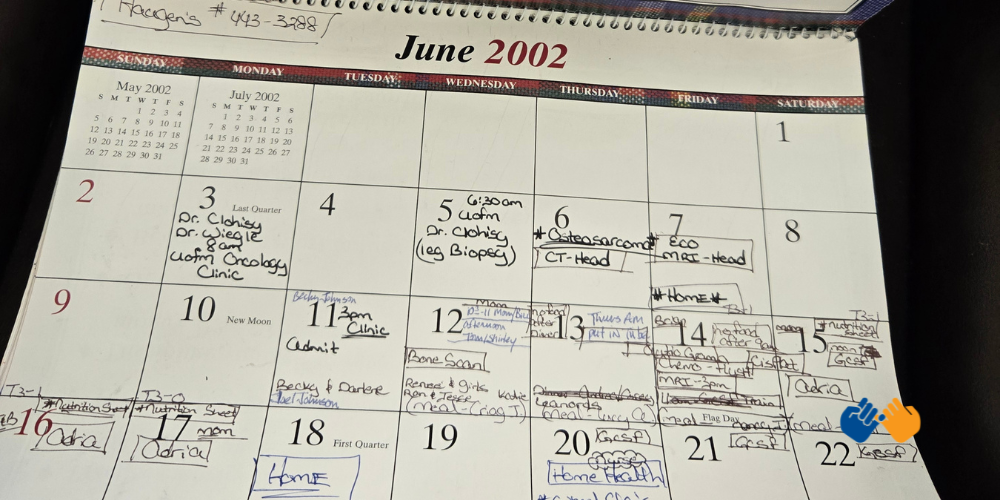 Haugen's # 443-3288
June 2002
SUNDAY MONDAY TUESDAY WEDNESDAY THURSDAY FRIDAY SATURDAY
May 2002
S M T W T F S
1 2 3 4
5 6 7 8 9 10 11
12 13 14 15 16 17 18
19 20 21 22 23 24 25
26 27 28 29 30 31
July 2002
S M T W T F S
1 2 3 4 5 6
7 8 9 10 11 12 13
14 15 16 17 18 19 20
21 22 23 24 25 26 27
28 29 30 31
1
2
3 Last Quarter
Dr. Clohisy
Dr. Wiegle
8am
UofM Oncology
Clinic
4
5 6:30am
UofM
Dr. Clohisy
(leg Biopsy)
6
*Osteosarcoma*
CT-Head
7
ECO
MRI-Head
*HOME*
8
9
10 New Moon
Becky Johnson
11 3pm
Clinic
Admit
Becky & Darlene
Joel Johnson
12 Mom
afternoon
Tom/Shirley
Bone Scan
Renee & Girls Katie
Ron & Jesse
(meal-
13 no food
after
Dinner
Thurs AM
put in
Leonards
meal-
14 no food
after
Chemo-
Cisplat
MRI-3pm
Flag Day
meal
15 T2-1
*Nutrition
Sheet
mom
GCSF
Adria
meal-
T3-1
*Nutrition Sheet
16
Adria
T3-0
*Nutrition Sheet
17 mom
Adria
18 First Quarter
HOME
19
20 GCSF
nurse
Home Health
21 GCSF
22 GCSF